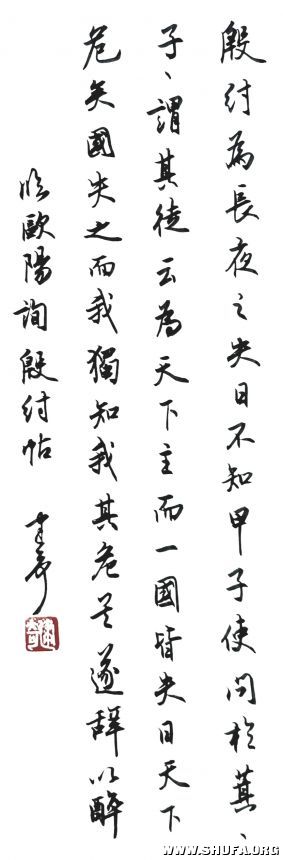 殷紂為長夜之失日不知甲子使問於萁、
子、謂其徒云為天下主而一國皆失日天下
危矣國失之而我獨知我其危矣遂辭以醉
臨歐陽詢殷紂帖
WWW.SHUFA.ORG